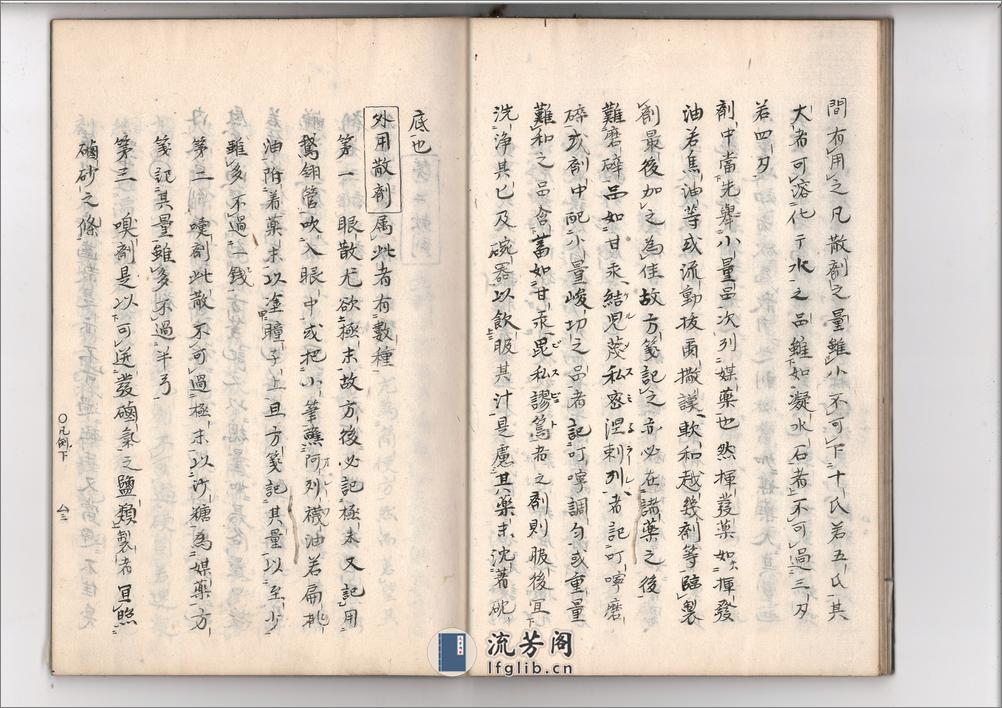 間有用之凡散剤之量雖小不可下十氏若五氏其
大者可溶化于水之品雖如凝水石者不可過三刃
若四刃
剤中當先舉小量品次列媒薬也然揮發薬如揮發
油若焉油等或流動抜爾撒謨軟和越幾剤等臨製
剤最後加之為佳故方箋記之亦必在諸薬之後
難磨碎品如甘汞結児蔑私密涅刺列者記叮嚀磨
碎或剤中配小量峻切之品者記叮嚀調匀或重量
難和之品含蓄如甘汞毘私謬篤者之剤則服後宜
洗浄其匕及碗器以飲服其汁是慮其薬末沈著砒
底也
外用散剤 属此者有數種
第一 眼散尤欲極末故方後必記極末又記用
鵞翎管吹入眼中或把小筆蘸阿列襪油若扁桃
油附着薬末以塗瞳子上且方箋記其量以至少
雖多不過一錢
第二 嚏剤此散不可過極末以沙糖為媒薬方
箋記其量雖多不過半弓
第三 嗅剤是以可迸發磠氣之鹽類製者宜照
磠砂之條
〇凡例下
流芳阁
lfglib.cn